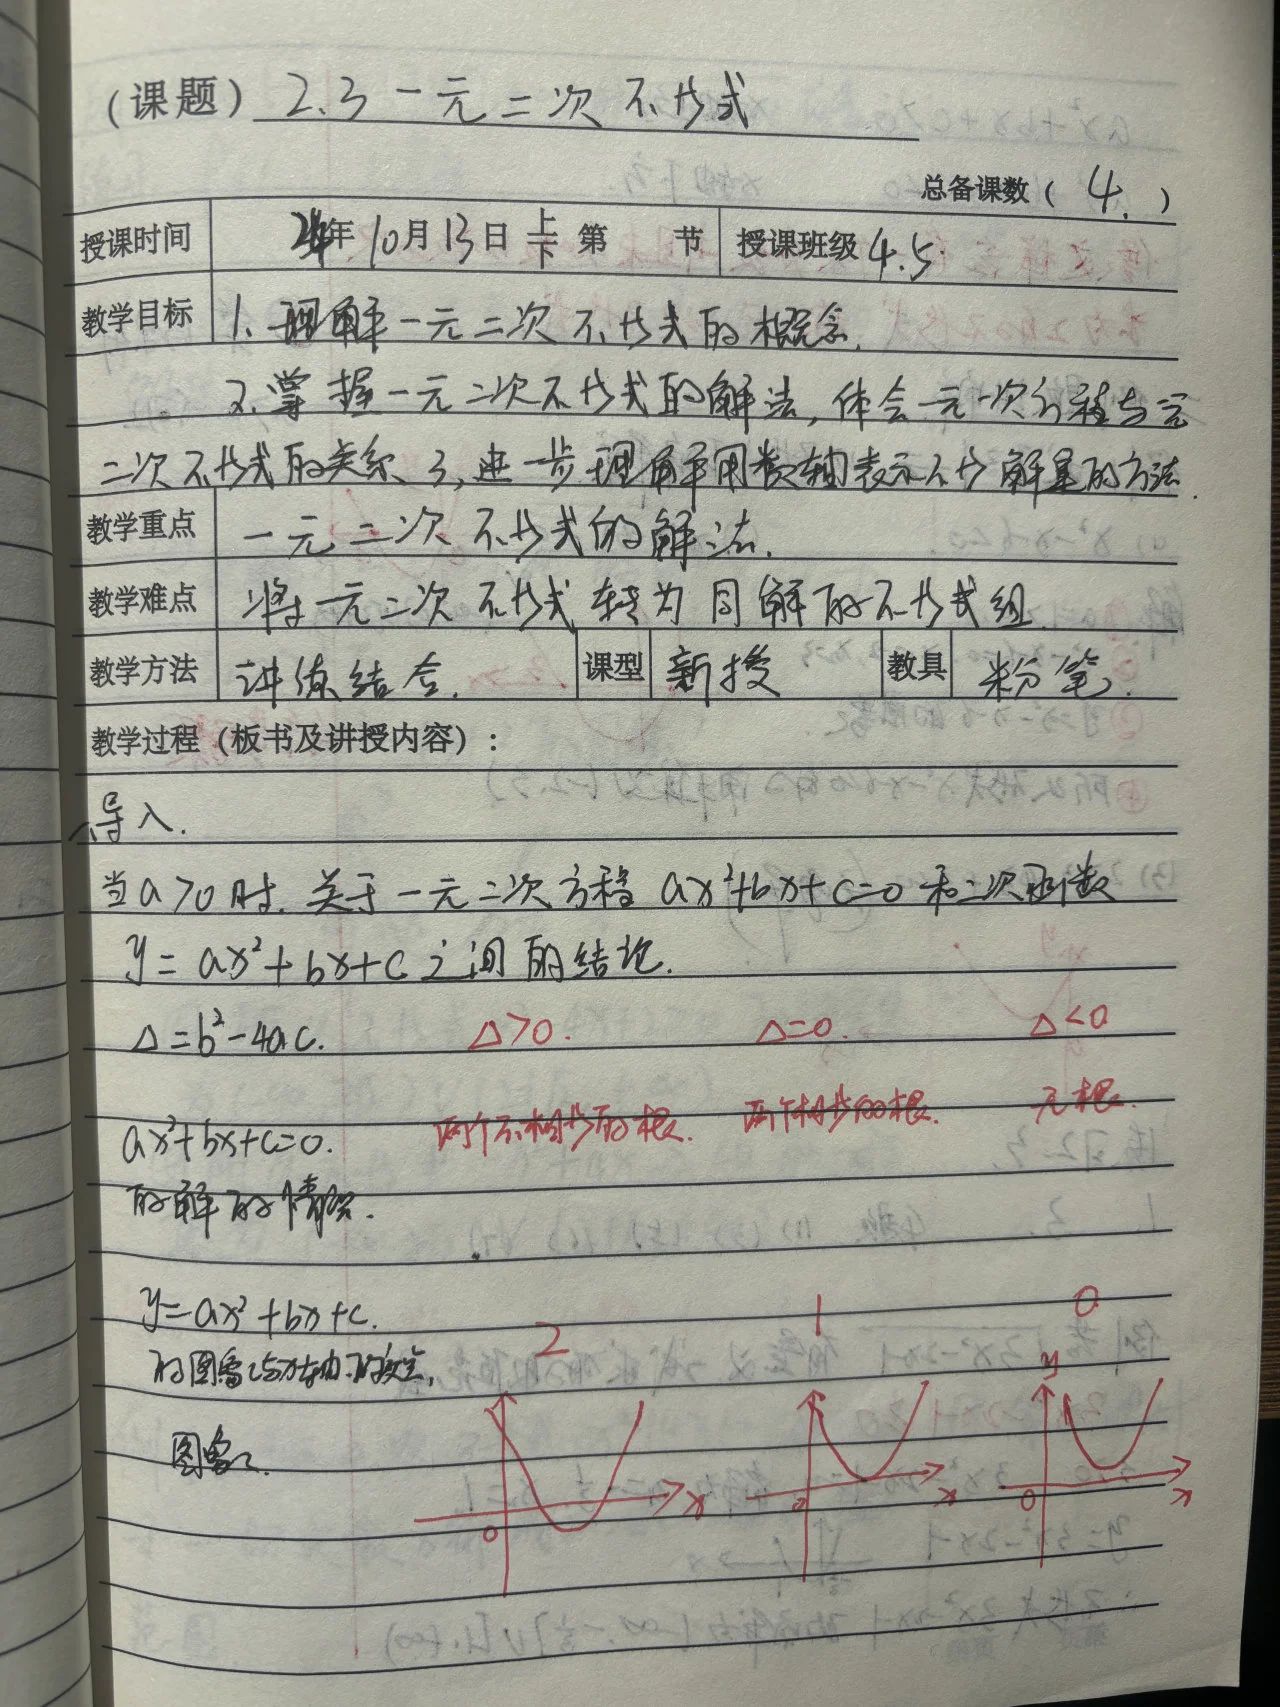 (课题) 2.3 一元二次不等式
总备课数( 4. )
授课时间 24年10月13日 上下 第 节 授课班级 4.5.
教学目标 1. 理解一元二次不等式的概念.
2. 掌握一元二次不等式的解法, 体会一元一次方程与一元
二次不等式的关系 3, 进一步理解用数轴表示不等解集的方法.
教学重点 一元二次不等式的解法.
教学难点 将一元二次不等式转为同解的不等式组.
教学方法 讲练结合. 课型 新授 教具 粉笔.
教学过程(板书及讲授内容):
一、导入.
当a>0时. 关于一元二次方程 ax²+bx+c=0 和二次函数
y=ax²+bx+c之间的结论.
Δ=b²-4ac. Δ>0. Δ=0. Δ<0
ax²+bx+c=0. 两个不相等的根. 两个相等的根. 无根.
的解的情况.
y=ax²+bx+c. 2 1 0
的图象与x轴的交点.
图象. x 0 x 0 y x 0